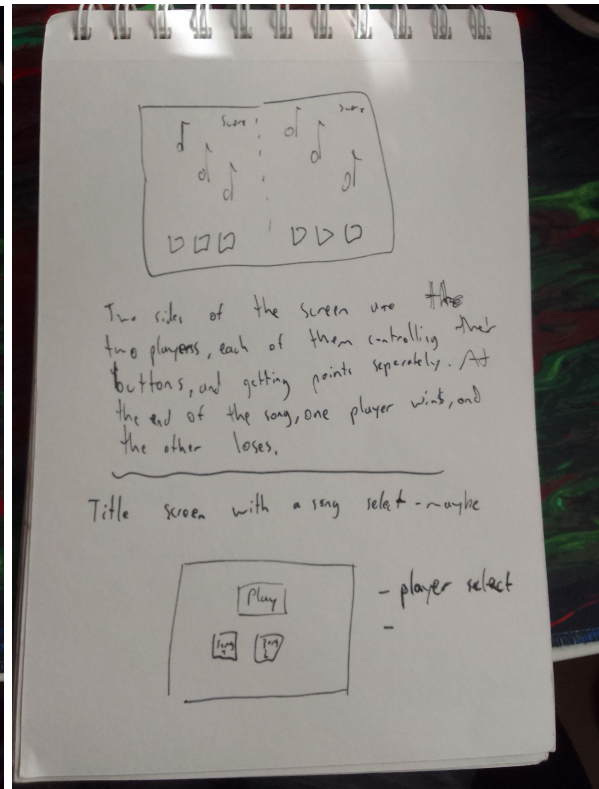 Score
Score
Two sides of the screen are the
two players, each of them controlling their
buttons, and getting points seperately. At
the end of the song, one player wins, and
the other loses.
Title screen with a song select - maybe
Play
- player select
-
Song
Song